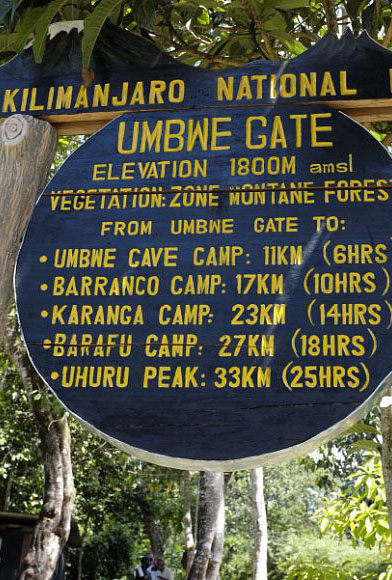 KILIMANJARO NATIONAL
UMBWE GATE
ELEVATION 1800M amsl
VEGETATION: ZONE MONTANE FOREST
FROM UMBWE GATE TO:
• UMBWE CAVE CAMP: 11KM (6HRS
• BARRANCO CAMP: 17KM (10HRS)
• KARANGA CAMP: 23KM (14HRS)
• BARAFU CAMP: 27KM (18HRS)
• UHURU PEAK: 33KM (25HRS)